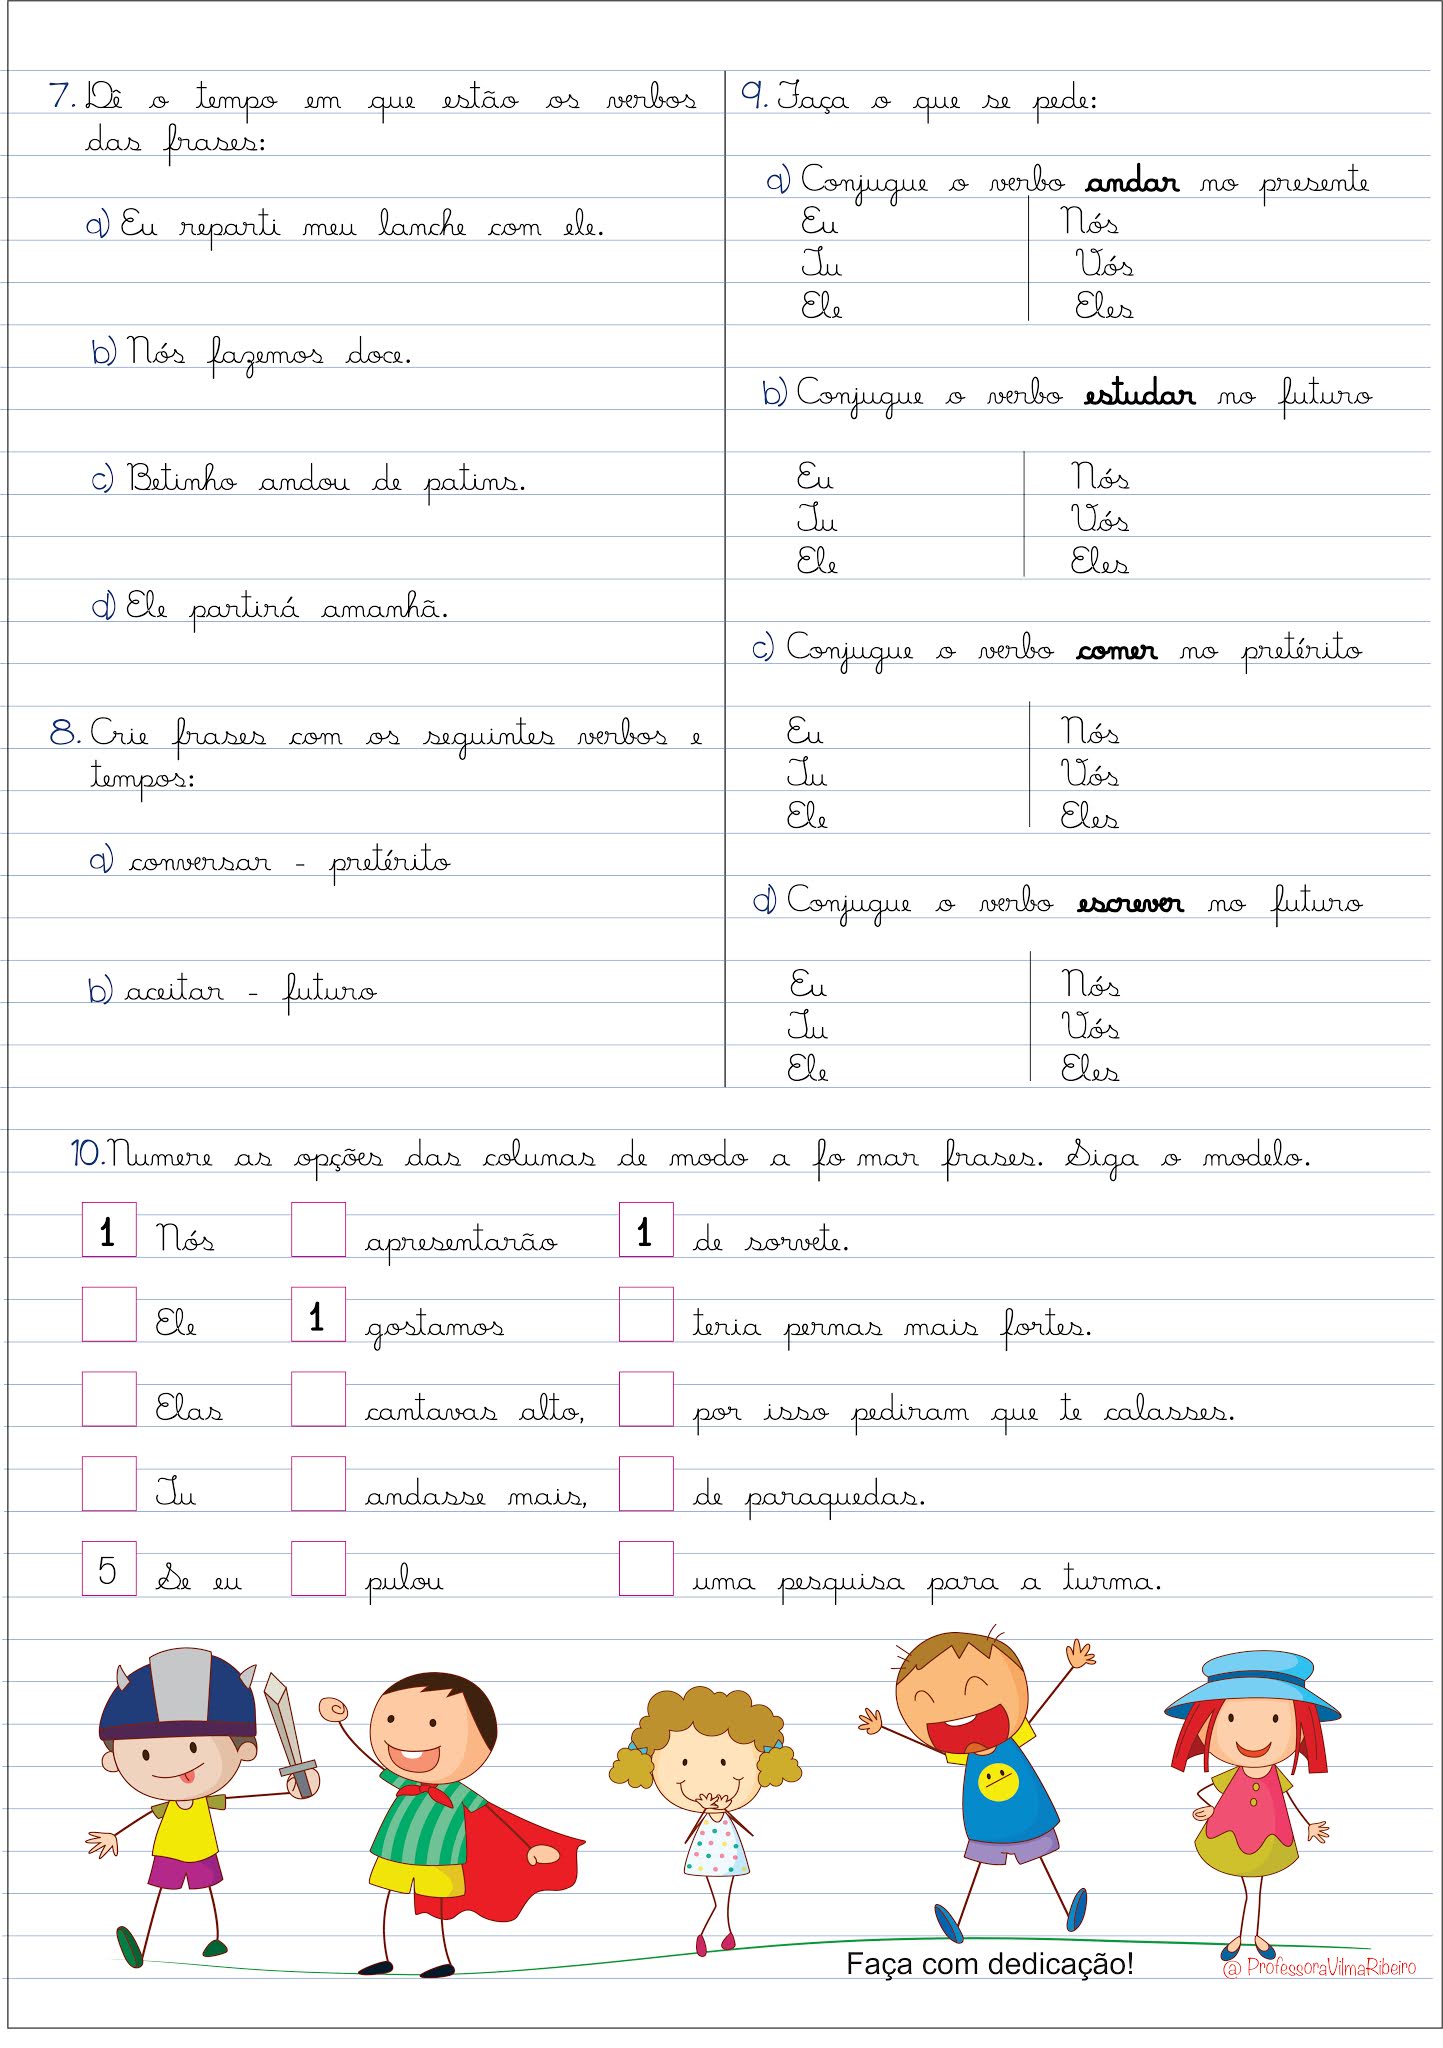 7. Dê o tempo em que estão os verbos
das frases:
a) Eu reparti meu lanche com ele.
b) Nós fazemos doce.
c) Betinho andou de patins.
d) Ele partirá amanhã.
8. Crie frases com os seguintes verbos e
tempos:
a) conversar - pretérito
b) aceitar - futuro
9. Faça o que se pede:
a) Conjugue o verbo andar no presente
Eu Nós
Tu Vós
Ele Eles
b) Conjugue o verbo estudar no futuro
Eu Nós
Tu Vós
Ele Eles
c) Conjugue o verbo comer no pretérito
Eu Nós
Tu Vós
Ele Eles
d) Conjugue o verbo escrever no futuro
Eu Nós
Tu Vós
Ele Eles
10. Numere as opções das colunas de modo a fo mar frases. Siga o modelo.
1 Nós apresentarão 1 de sorvete.
Ele 1 gostamos teria pernas mais fortes.
Elas cantavas alto, por isso pediram que te calasses.
Tu andasse mais, de paraquedas.
5 Se eu pulou uma pesquisa para a turma.
Faça com dedicação!
@ ProfessoraVilmaRibeiro